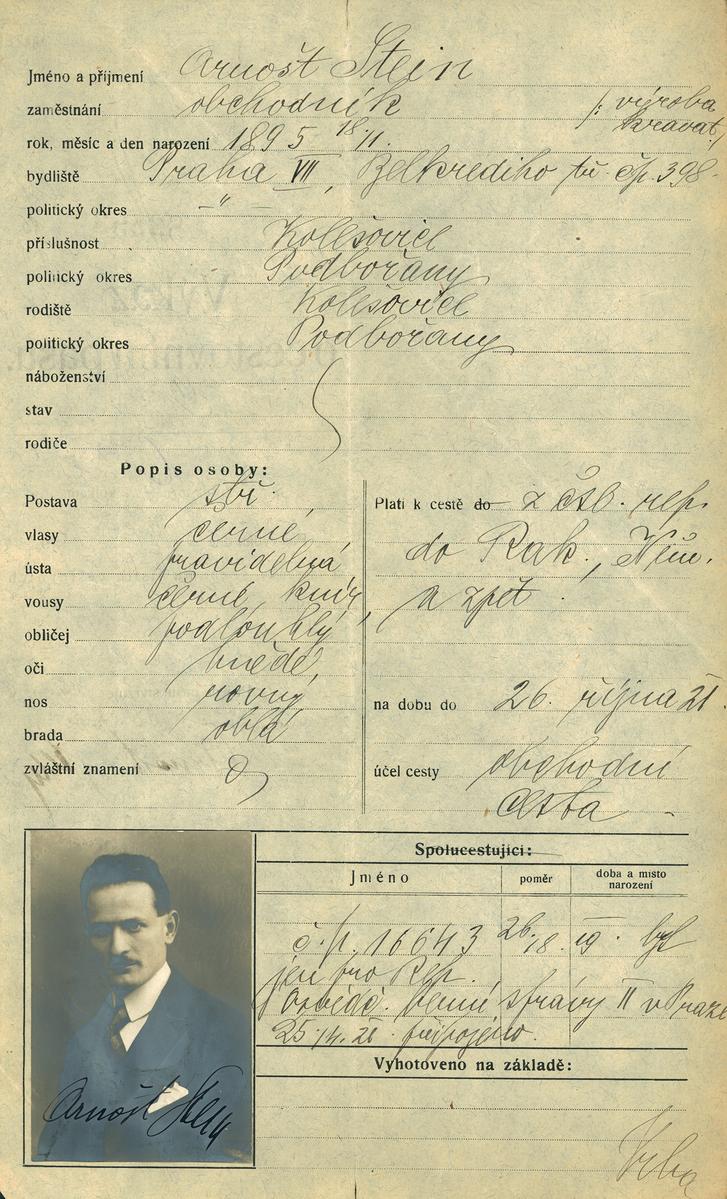 Jméno a příjmení Arnošt Stein
zaměstnání obchodník /: výroba kravat :/
rok, měsíc a den narození 1895 18./11.
bydliště Praha VII, Belkrediho tř. čp. 398
politický okres – " –
příslušnost Kolešovice
politický okres Podbořany
rodiště Kolešovice
politický okres Podbořany
náboženství
stav
rodiče
Popis osoby:
Postava stř.
vlasy černé
ústa pravidelná
vousy černé, knír
obličej podlouhlý
oči hnědé
nos rovný
brada oblá
zvláštní znamení 0
Platí k cestě do z čsl. rep.
do Rak., Něm.
a zpět.
na dobu do 26. října 21.
účel cesty obchodní
cesta
Spolucestující:
Jméno poměr doba a místo narození
č. p. 16643 26./8. 19. byl
jen pro Rep.
Osvědč. berní správy II v Praze
25./4. 21. připojeno.
Vyhotoveno na základě:
Arnošt Stein